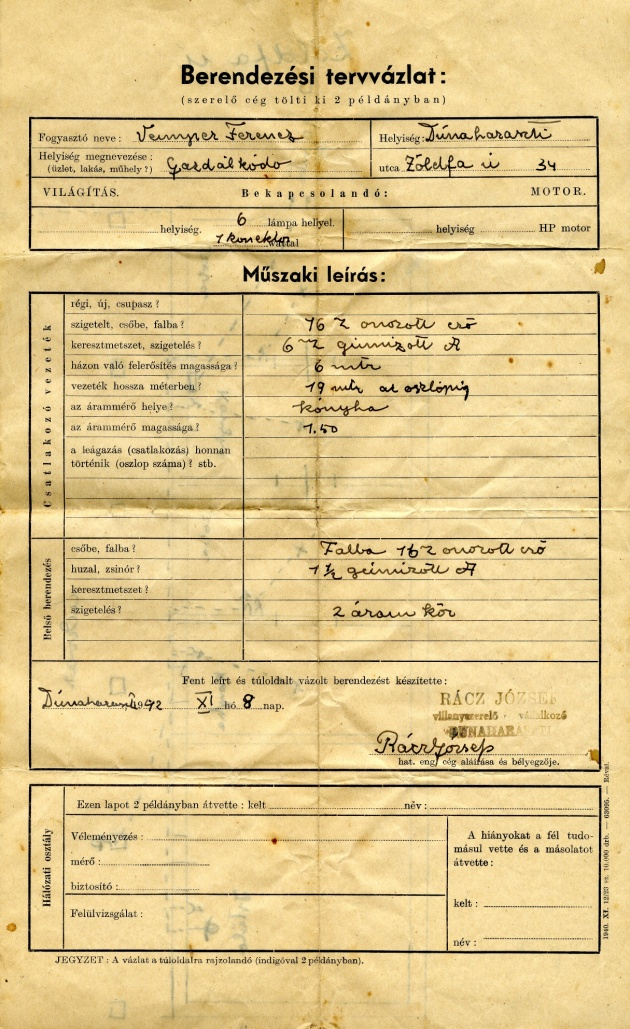 Berendezési tervvázlat:
(szerelő cég tölti ki 2 példányban)
Fogyasztó neve: Ferencz
Helyiség: Dúnaharaszti
Helyiség megnevezése: (üzlet, lakás, műhely?) Gazdálkódo
utca Zöldfa ú 34
VILÁGÍTÁS. Bekapcsolandó: MOTOR.
helyiség. 6 lámpa hellyel. helyiség HP motor
1 konektor wattal
Műszaki leírás:
Csatlakozó vezeték
régi, új, csupasz?
szigetelt, csőbe, falba? 16 cső
keresztmetszet, szigetelés? 6
házon való felerősítés magassága? 6 mtr
vezeték hossza méterben? 19 mtr az oszlopig
az árammérő helye? kónyha
az árammérő magassága? 1.50
a leágazás (csatlakozás) honnan
történik (oszlop száma)? stb.
Belső berendezés
csőbe, falba? Falba 16 cső
huzal, zsinór? 1½
keresztmetszet?
szigetelés? 2 áram kör
Fent leírt és túloldalt vázolt berendezést készítette:
XI hó 8 nap.
RÁCZ JÓZSEF
villanyszerelő vállalkozó
DUNAHARASZTI
Rácz József
hat. eng. cég aláírása és bélyegzője.
Hálózati osztály
Ezen lapot 2 példányban átvette: kelt név:
Véleményezés:
mérő:
biztosító:
Felülvizsgálat:
A hiányokat a fél tudo-
másul vette és a másolatot
átvette:
kelt:
név:
JEGYZET: A vázlat a túloldalra rajzolandó (indigóval 2 példányban).
1940. XI. 12/23 sz. 10.000 drb. — 63095. — Révai.